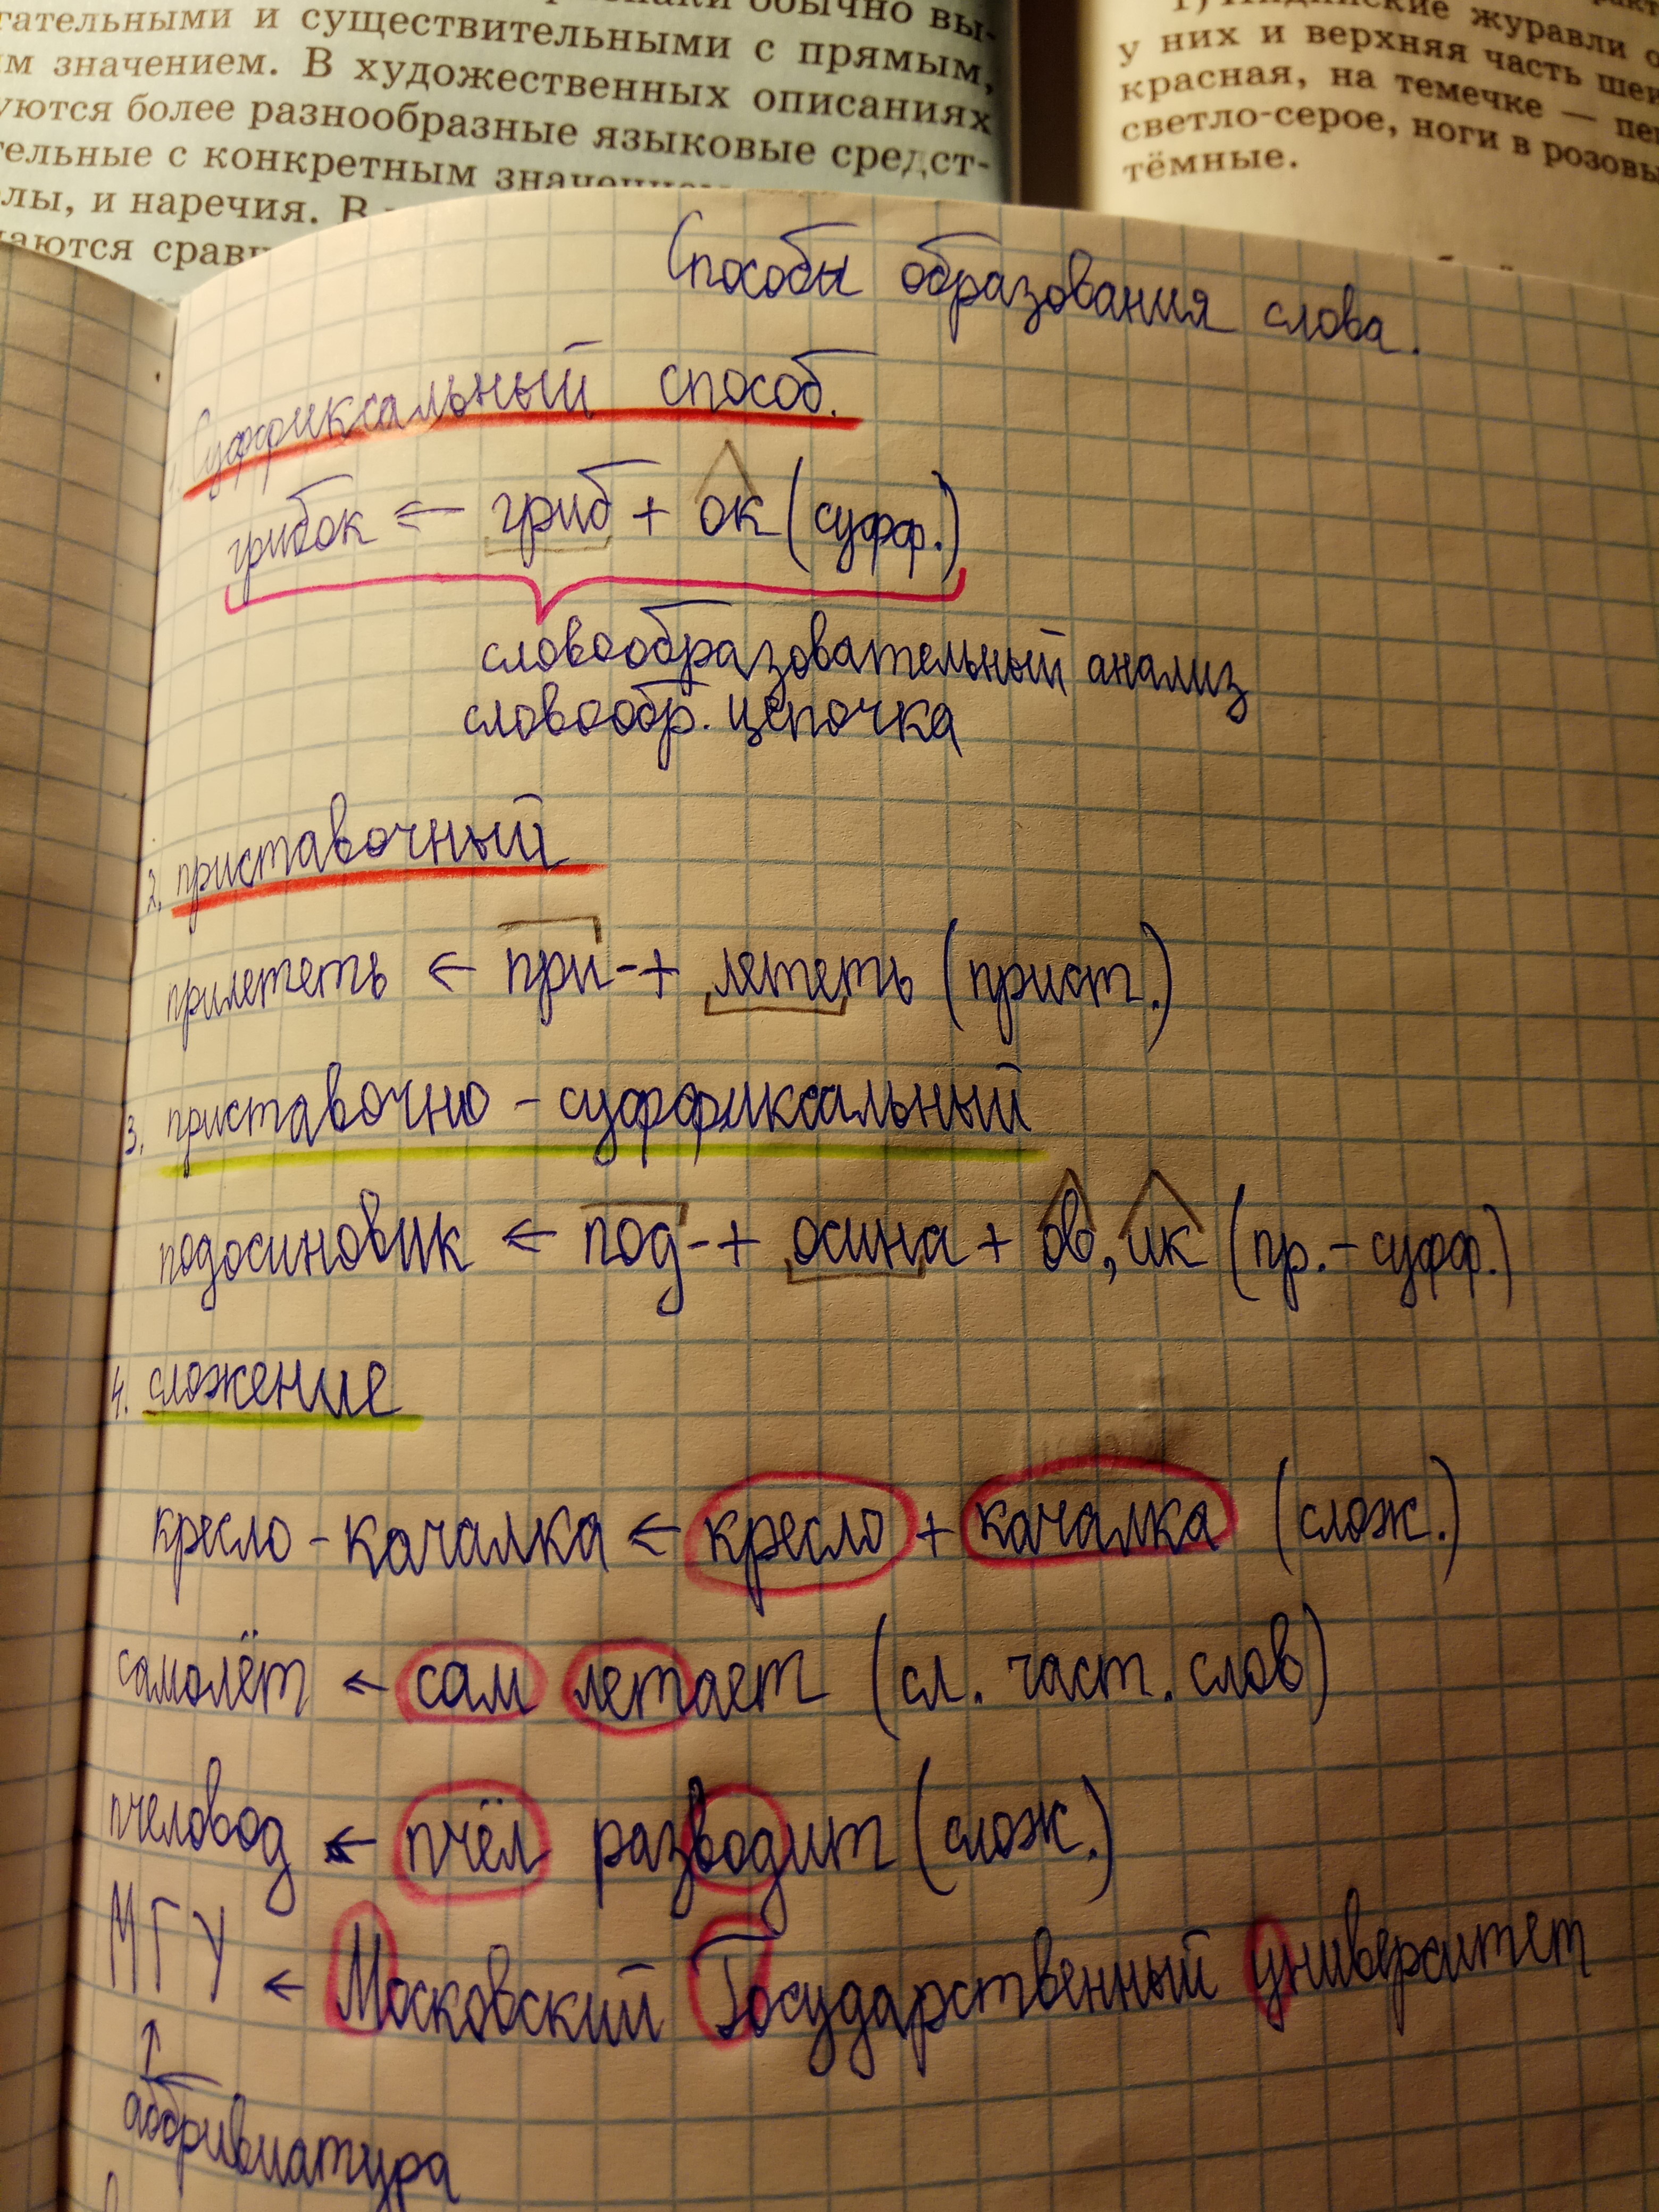 обычно вы-
гательными и существительными с прямым,
м значением. В художественных описаниях
уются более разнообразные языковые средст-
тельные с конкретным значением
лы, и наречия. В
аются срав
журавли
у них и верхняя часть шеи
красная, на темечке —
светло-серое, ноги в розовы
тёмные.
Способы образования слова.
1. Суффиксальный способ.
грибок ← гриб + ок (суфф.)
словообразовательный анализ
словообр. цепочка
2. приставочный
прилететь ← при- + лететь (прист.)
3. приставочно - суффиксальный
подосиновик ← под- + осина + ов, ик (пр. - суфф.)
4. сложение
кресло - качалка ← кресло + качалка (слож.)
самолёт ← сам летает (сл. част. слов)
пчеловод ← пчёл разводит (слож.)
МГУ ← Московский Государственный университет
аббривиатура